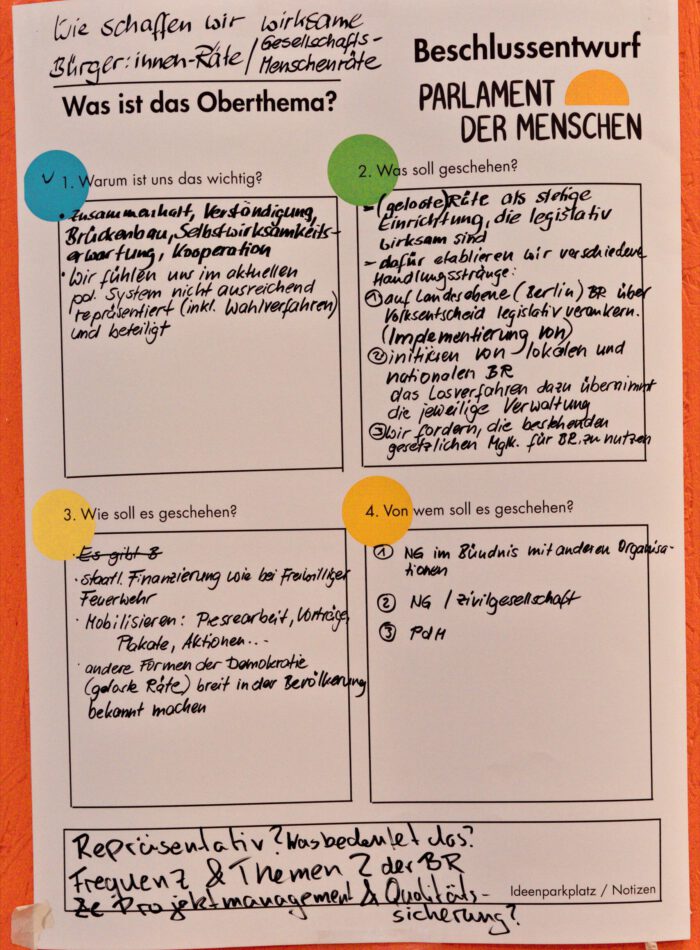 Wie schaffen wir wirksame
Bürger:innen-Räte / Gesellschafts-
Menschenräte
Was ist das Oberthema?
Beschlussentwurf
PARLAMENT
DER MENSCHEN
1. Warum ist uns das wichtig?
• Zusammenhalt, Verständigung,
Brückenbau, Selbstwirksamkeits-
erwartung, Kooperation
• Wir fühlen uns im aktuellen
pol. System nicht ausreichend
repräsentiert (inkl. Wahlverfahren)
und beteiligt
2. Was soll geschehen?
- (geloste) Räte als stetige
Einrichtung, die legislativ
wirksam sind
- dafür etablieren wir verschiedene
Handlungsstränge:
① auf Landesebene (Berlin) BR über
Volksentscheid legislativ verankern.
(Implementierung von)
② initiieren von lokalen und
nationalen BR
das Losverfahren dazu übernimmt
die jeweilige Verwaltung
③ Wir fordern, die bestehenden
gesetzlichen Mglk. für BR. zu nutzen
3. Wie soll es geschehen?
· Es gibt B
· staatl. Finanzierung wie bei Freiwilliger
Feuerwehr
· Mobilisieren: Pressearbeit, Vorträge,
Plakate, Aktionen...
· andere Formen der Demokratie
(geloste Räte) breit in der Bevölkerung
bekannt machen
4. Von wem soll es geschehen?
① NG im Bündnis mit anderen Organisa-
tionen
② NG / Zivilgesellschaft
③ PdM
Repräsentativ? Was bedeutet das?
Frequenz & Themen? der BR
Projektmanagement & Qualitäts-
sicherung?
Ideenparkplatz / Notizen